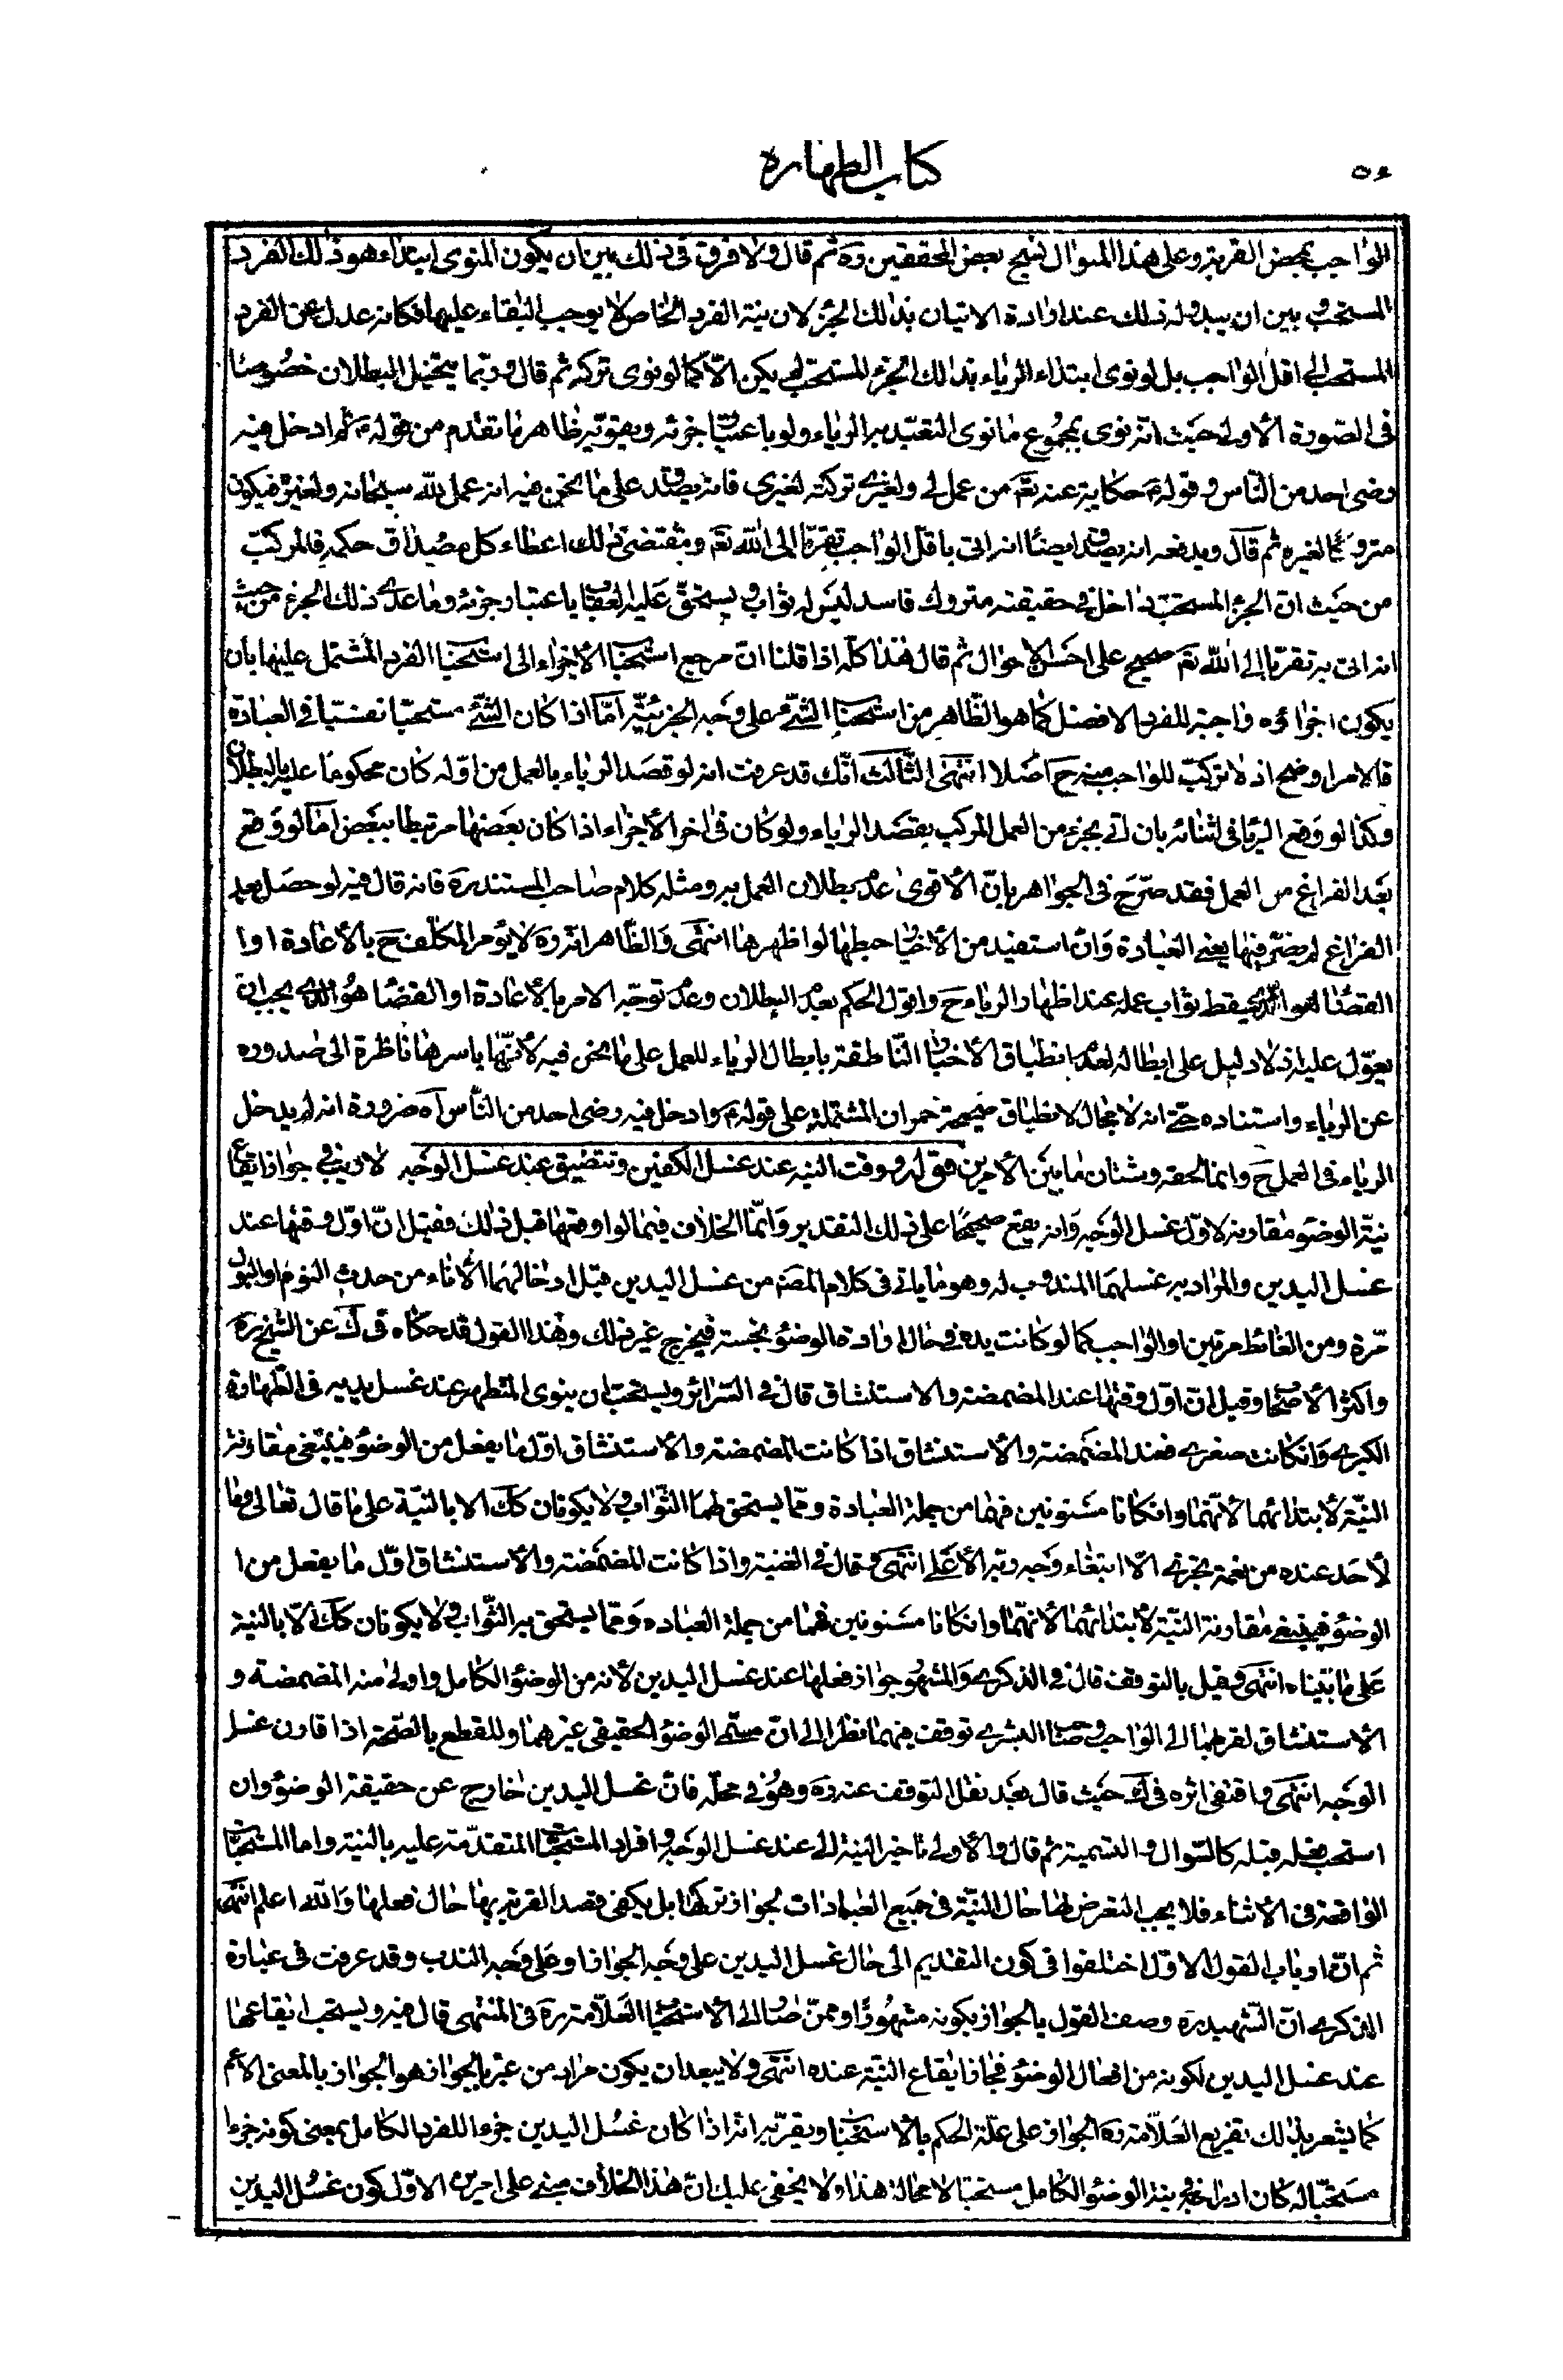 ٥٤
كتاب الطهارة
الواجب بمحض القربة وعلى هذا المنوال نسج بعض المحققين ره ثم قال ولا فرق في ذلك بين ان يكون المنوى ابتداء هو ذلك الفرد
المستحب وبين ان يبدو له ذلك عند ارادة الاتيان بذلك الجزء لان نية الفرد الخاص لا يوجب البقاء عليها فكانه عدل عن الفرد
المستحب الى اقل الواجب بل لو نوى ابتداء الرياء بذلك الجزء المستحب لم يكن الا كما لو نوى تركه ثم قال وربما يتخيل البطلان خصوصا
في الصورة الأولى حيث انه نوى بمجموع ما نوى التعبد به الرياء ولو باعتبار جزئه ويقويه ظاهر ما تقدم من قوله ع او ادخل فيه
رضى احد من الناس وقوله ع حكاية عنه تعم من عمل لي ولغيري تركته لغيري فانه يصدق على ما نحن فيه انه عمل لله سبحانه ولغيره فيكون
متروكا لغيره ثم قال ويدفعه انه يصدق ايضا انه اتى باقل الواجب تقربا الى الله تعم ومقتضى ذلك اعطاء كل مصداق حكمه فالمركب
من حيث ان الجزء المستحب داخل في حقيقته متروك فاسد ليس له ثواب ويستحق عليه العقاب باعتبار جزئه وما عدى ذلك الجزء من حيث
انه اتى به تقربا الى الله تعم صحيح على احسن الاحوال ثم قال هذا كله اذا قلنا ان مرجع استحباب الأجزاء الى استحباب الفرد المشتمل عليها بان
يكون اجزاؤه واجبة للفرد الافضل كما هو الظاهر من استحباب الشئ على وجه الجزئية اما اذا كان الشئ مستحبا نفسيا في العبادة
فالامر اوضح اذ لا تركب للواجب منه ح اصلا انتهى الثالث انك قد عرفت انه لو قصد الرياء بالعمل من اوله كان محكوما عليه بالبطلان
وكذا لو وقع الريا في اثنائه بان اتى بجزء من العمل المركب بقصد الرياء ولو كان في اخر الأجزاء اذا كان بعضها مرتبطا ببعض اما لو وقع
بعد الفراغ من العمل فقد صرح في الجواهر بان الأقوى عدم بطلان العمل به ومثله كلام صاحب المستند ره فانه قال فيه لو حصل بعد
الفراغ لم يضر فيها يعنى العبادة وان استفيد من الأخبار حبطها لو اظهرها انتهى والظاهر انه ره لا يؤمر المكلف ح بالأعادة او ا
القضاء لهوا يسقط ثواب عمله عند اظهار الرياء ح واقول الحكم بعدم البطلان وعدم توجه الامر بالأعادة او القضاء هو الذي يجب ان
يعول عليه اذ لا دليل على ابطاله لعدم انطباق الأخبار الناطقة بابطال الرياء للعمل على ما نحن فيه لأنها باسرها ناظرة الى صدوره
عن الرياء واستناده حتى انه لا مجال لانطباق صحيحة حمران المشتملة على قوله ع وادخل فيه رضى احد من الناس اه ضرورة انه لم يدخل
الرياء في العمل ح وانما لحقه وشتان ما بين الأمرين قوله ووقت النية عند غسل الكفين وتتضيق عند غسل الوجه لا ريب في جواز ايقاع
نية الوضوء مقارنة لاول غسل الوجه وانه يقع صحيحا على ذلك التقدير وانما الخلاف فيما لو اوقعها قبل ذلك فقيل ان اول وقتها عند
غسل اليدين والمراد به غسلهما المندوب له وهو ما ياتى في كلام المصنف من غسل اليدين قبل ادخالهما الأناء من حدث النوم او البول
مرة ومن الغائط مرتين او الواجب كما لو كانت يده في حال ارادة الوضوء نجسة فيخرج غير ذلك وهذا القول قد حكاه في ك عن الشيخ ره
واكثر الأصحاب وقيل ان اول وقتها عند المضمضة والاستنشاق قال في السرائر ويستحب ان ينوى المتطهر عند غسل يديه في الطهارة
الكبرى وان كانت صغرى فعند المضمضة والأستنشاق اذا كانت المضمضة والأستنشاق اول ما يفعل من الوضوء فينبغى مقارنة
النية لأبتدائهما لأنهما وان كانا مسنونين فهما من جملة العبادة ومما يستحق لهما الثواب ولا يكونان كك الا بالنية على ما قال تعالى وما
لأحد عنده من نعمة تجزى الا ابتغاء وجه ربه الأعلى انتهى وقال في الغنية واذا كانت المضمضة والأستنشاق اول ما يفعل من ا
الوضوء فينبغى مقارنة النية لأبتدائهما لأنهما وان كانا مسنونين فهما من جملة العباده ومما يستحق به الثواب ولا يكونان كك الا بالنية
على ما بيناه انتهى وقيل بالتوقف قال في الذكرى والمشهور جواز فعلها عند غسل اليدين لأنه من الوضوء الكامل واولى منه المضمضة و
الأستنشاق لقربهما الى الواجب وصاحب البشرى توقف فيهما نظرا الى ان مسمى الوضوء الحقيقى غيرهما وللقطع بالصحة اذا قارن غسل
الوجه انتهى واقتفى اثره في ك حيث قال بعد نقل التوقف عنه ره وهو في محله فان غسل اليدين خارج عن حقيقة الوضوء وان
استحب فعله قبله كالسواك والتسمية ثم قال والأولى تاخير النية الى عند غسل الوجه وافراد المستحبات المتقدمة عليه بالنية واما المستحبات
الواقعة في الاثناء فلا يجب التعرض لها حال النية في جميع العبادات لجواز تركها بل يكفى قصد القربة بها حال فعلها والله اعلم انتهى
ثم ان ارباب القول الاول اختلفوا في كون التقديم الى حال غسل اليدين على وجه الجواز او على وجه الندب وقد عرفت في عبارة
الذكرى ان الشهيد ره وصف القول بالجواز بكونه مشهورا وممن صار الى الأستحباب العلامة ره في المنتهى قال فيه ويستحب ايقاعها
عند غسل اليدين لكونه من افعال الوضوء فجاز ايقاع النية عنده انتهى ولا يبعد ان يكون مراد من عبر بالجواز هو الجواز بالمعنى الاعم
كما يشعر بذلك تفريع العلامة ره الجواز على علة الحكم بالأستحباب وتقريبه انه اذا كان غسل اليدين جزءا للفرد الكامل بمعنى كونه جزءا
مستحبا له كان ادراجه في نية الوضوء الكامل مستحبا لا محالة هذا ولا يخفى عليك ان هذا الخلاف مبنى على امرين الاول كون غسل اليدين